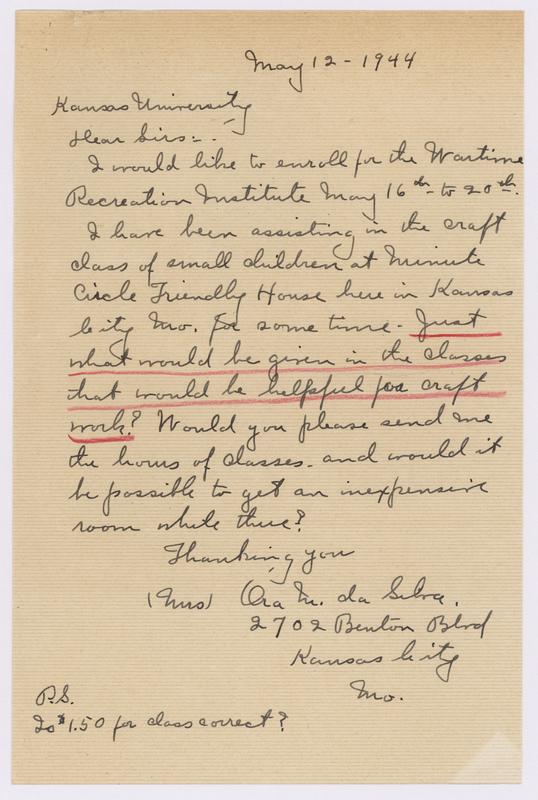 May 12 - 1944
Kansas University
Dear Sirs:-.
I would like to enroll for the Wartime
Recreation Institute May 16th to 20th.
I have been assisting in the craft
class of small children at Minute
Circle Friendly House here in Kansas
City Mo. for some time - Just
what would be given in the classes
that would be helpful for craft
work? Would you please send me
the hours of classes - and would it
be possible to get an inexpensive
room while there?
Thanking you
(Mrs) Ora M. da Silva.
2702 Benton Blvd
Kansas City
Mo.
P.S.
Is $1.50 for class correct?